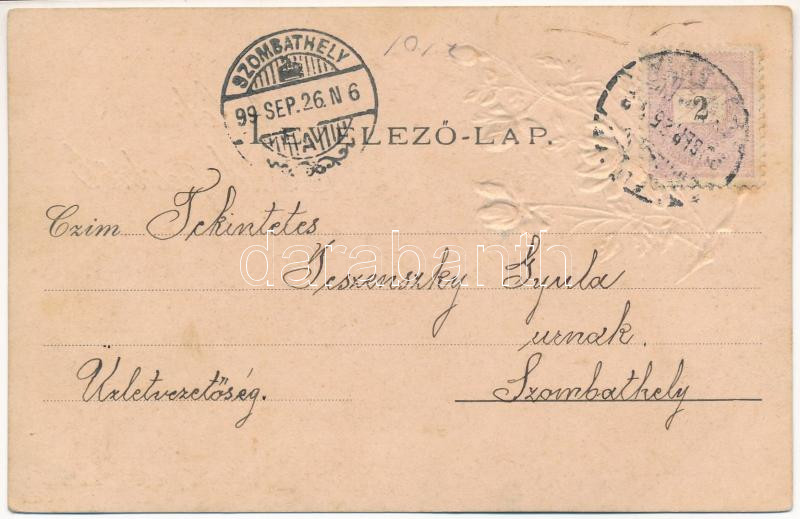 10.
SZOMBATHELY
99 SEP. 26. N 6
LEVELEZŐ-LAP.
2
Czim Tekintetes
darabanth
Teszenszky Gyula
urnak.
Üzletvezetőség. Szombathely